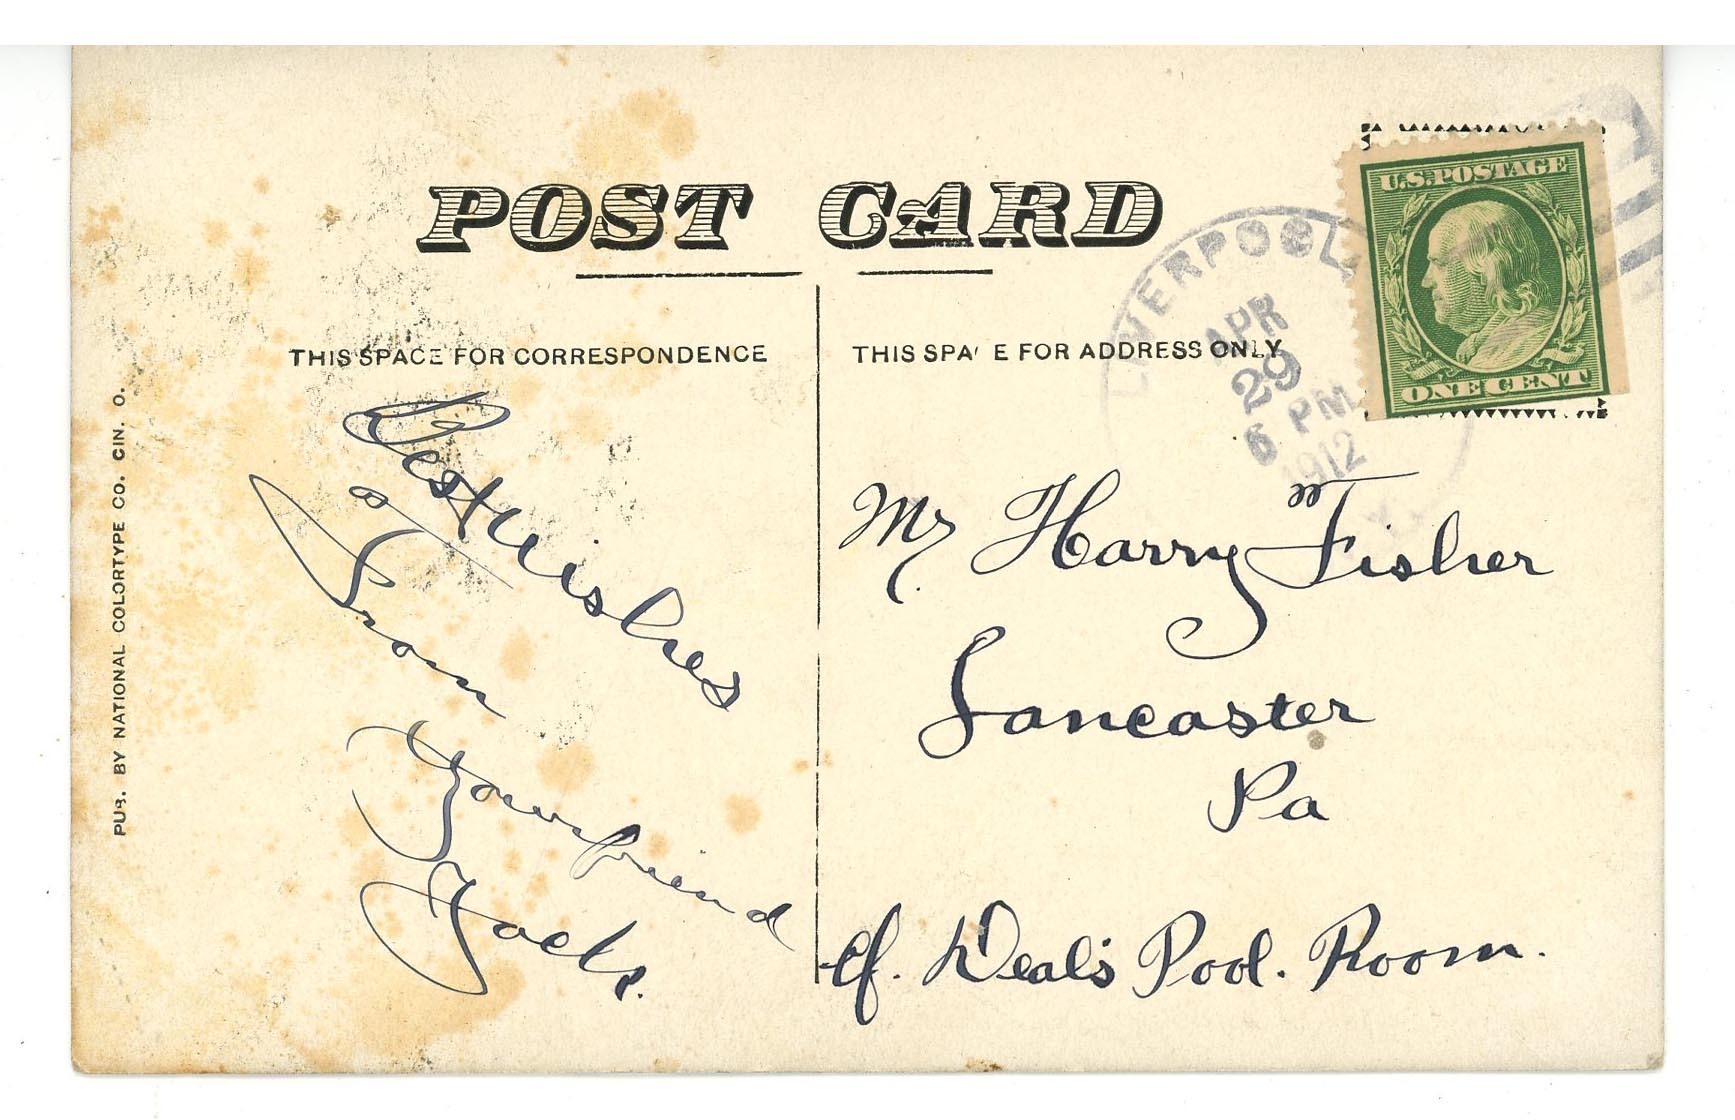 POST CARD
THIS SPACE FOR CORRESPONDENCE
THIS SPA E FOR ADDRESS ONLY
PUB. BY NATIONAL COLORTYPE CO. CIN. O.
U.S. POSTAGE
ONE CENT
LIVERPOOL
APR
29
6 PM
1912
Best Wishes
as
From
Your friend
Jack.
Mr Harry Fisher
Lancaster
Pa
c/o. Deal's Pool. Room.